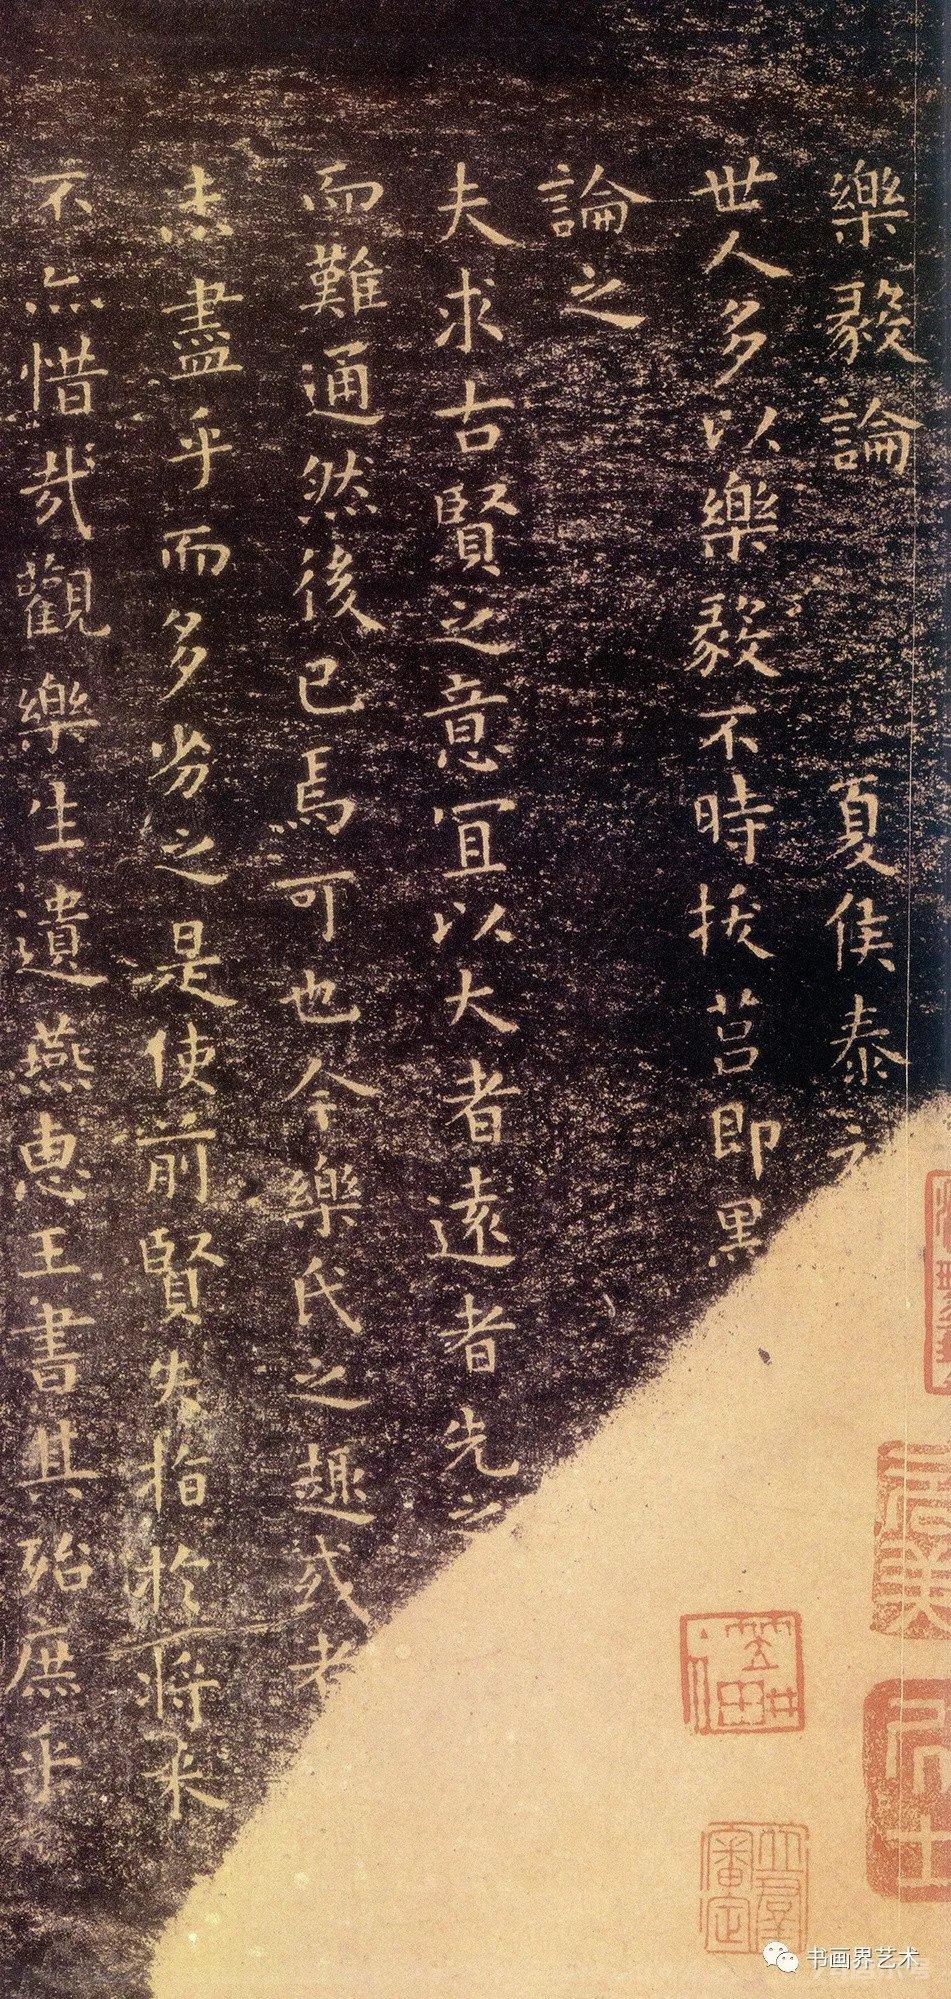 樂毅論 夏侯泰
世人多以樂毅不時拔莒即黑
論之
夫求古賢之意宜以大者遠者先之
而難通然後已焉可也今樂氏之趣或者
未盡乎而多劣之是使前賢失指於將来
不亦惜哉觀樂生遺燕惠王書其殆庶乎
书画界艺术